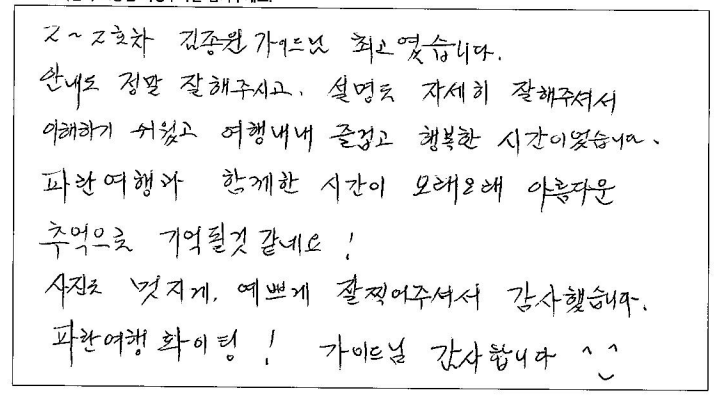 2~2호차 김종원 가이드님 최고였습니다.
안내도 정말 잘해주시고, 설명도 자세히 잘해주셔서
이해하기 쉬웠고 여행내내 즐겁고 행복한 시간이었습니다.
파란여행과 함께한 시간이 오래오래 아름다운
추억으로 기억될것 같네요 !
사진도 멋지게, 예쁘게 잘찍어주셔서 감사했습니다.
파란여행 화이팅 ! 가이드님 감사합니다 ^_^